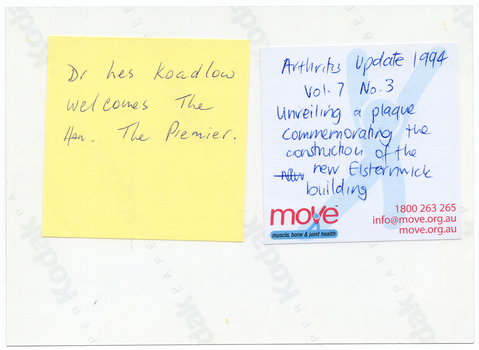 Dr Les Koadlow
welcomes The
Hon. The Premier.
Arthritis Update 1994
Vol. 7 No. 3
Unveiling a plaque
commemorating the
construction of the
new Elsternwick
building
move
muscle, bone & joint health
1800 263 265
info@move.org.au
move.org.au
Kodak
PAPER